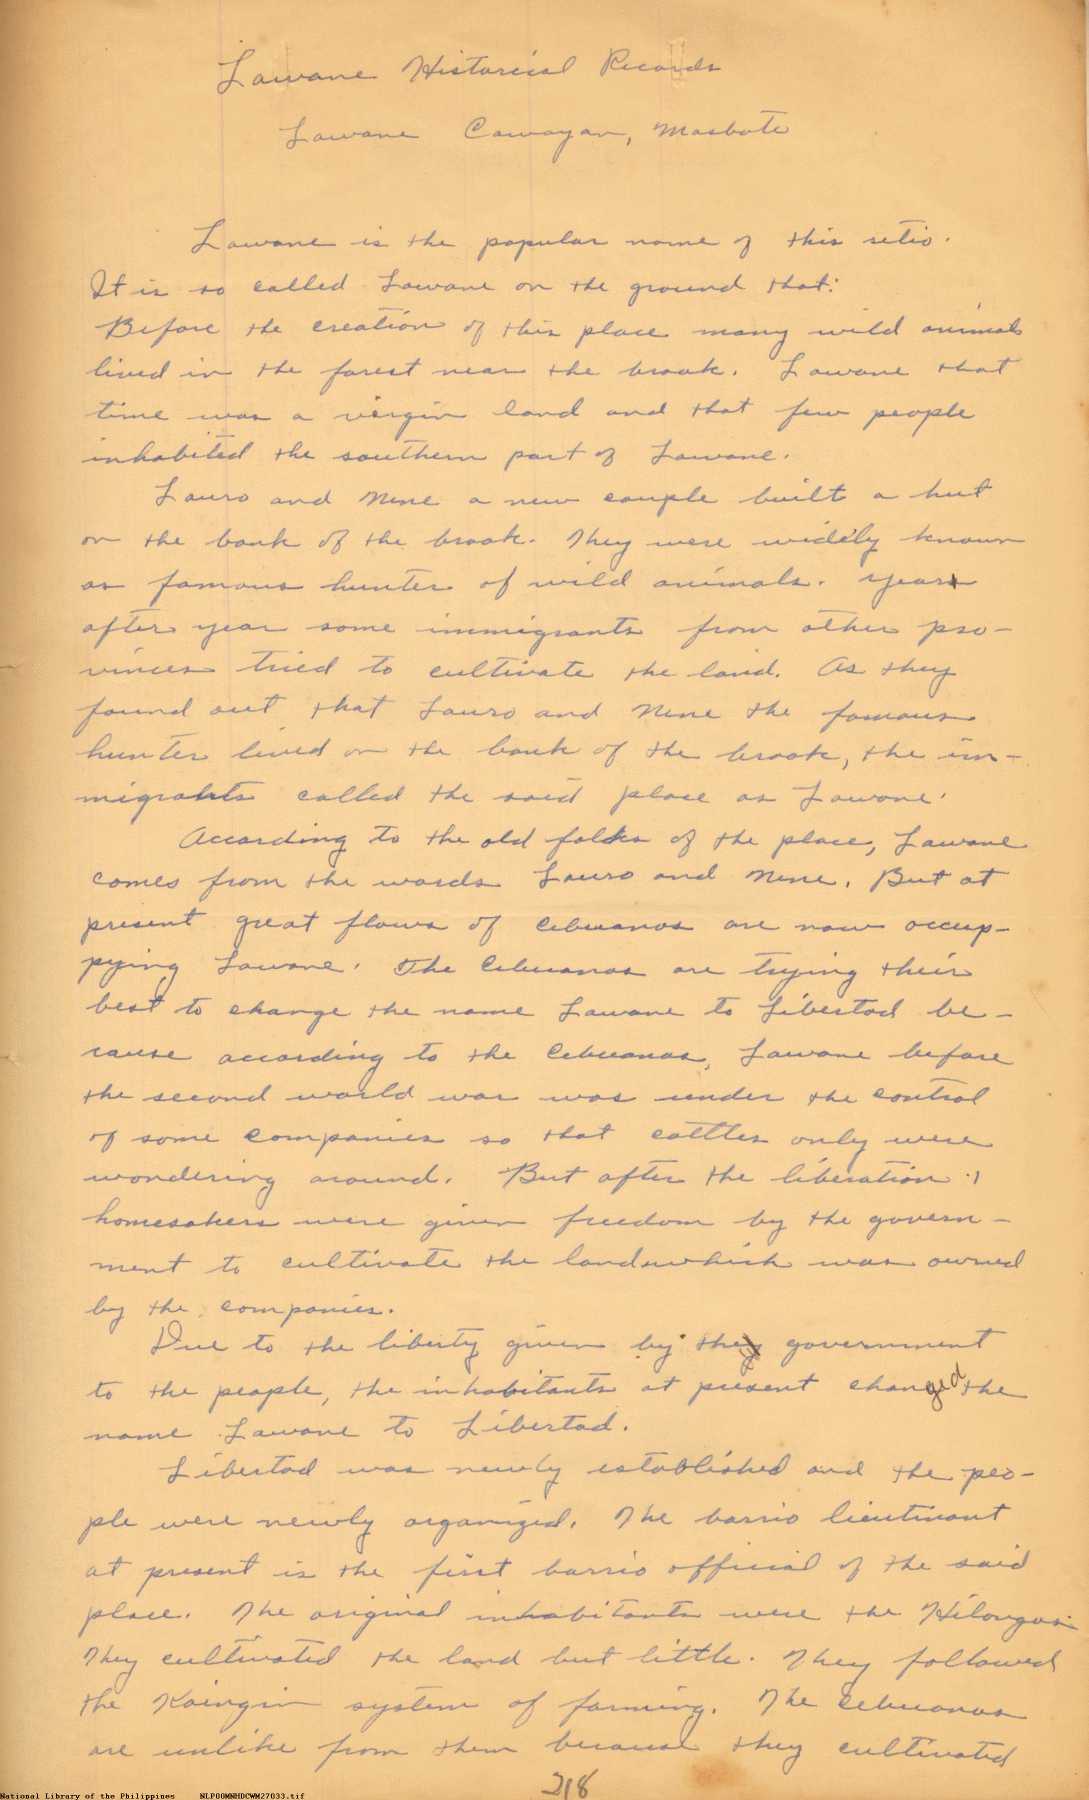 Lawane Historical Records
Lawane Cawayan, Masbate
Lawane is the popular name of this sitio.
It is so called Lawane on the ground that:
Before the creation of this place many wild animals
lived in the forest near the brook. Lawane that
time was a virgin land and that few people
inhabited the southern part of Lawane.
Lauro and Nene a new couple built a hut
on the bank of the brook. They were widely known
as famous hunter of wild animals. Year
after year some immigrants from other pro-
vinces tried to cultivate the land. As they
found out that Lauro and Nene the famous
hunter lived on the bank of the brook, the im-
migrants called the said place as Lawane.
According to the old folks of the place, Lawane
comes from the words Lauro and Nene. But at
present great flows of Cebuanos are now occup-
pying Lawane. The Cebuanos are trying their
best to change the name Lawane to Libertad be-
cause according to the Cebuanos, Lawane before
the second world war was under the control
of some companies so that cattles only were
wondering around. But after the liberation
homesakers were given freedom by the govern-
ment to cultivate the lands which was owned
by the companies.
Due to the liberty given by the government
to the people, the inhabitants at present changed the
name Lawane to Libertad.
Libertad was newly established and the peo-
ple were newly organized. The barrio lieutinant
at present is the first barrio official of the said
place. The original inhabitants were the Hilongos
They cultivated the land but little. They followed
the Kaingin system of farming. The Cebuanos
are unlike from them because they cultivated
218
National Library of the Philippines NLP00MNHDCWM27033.tif